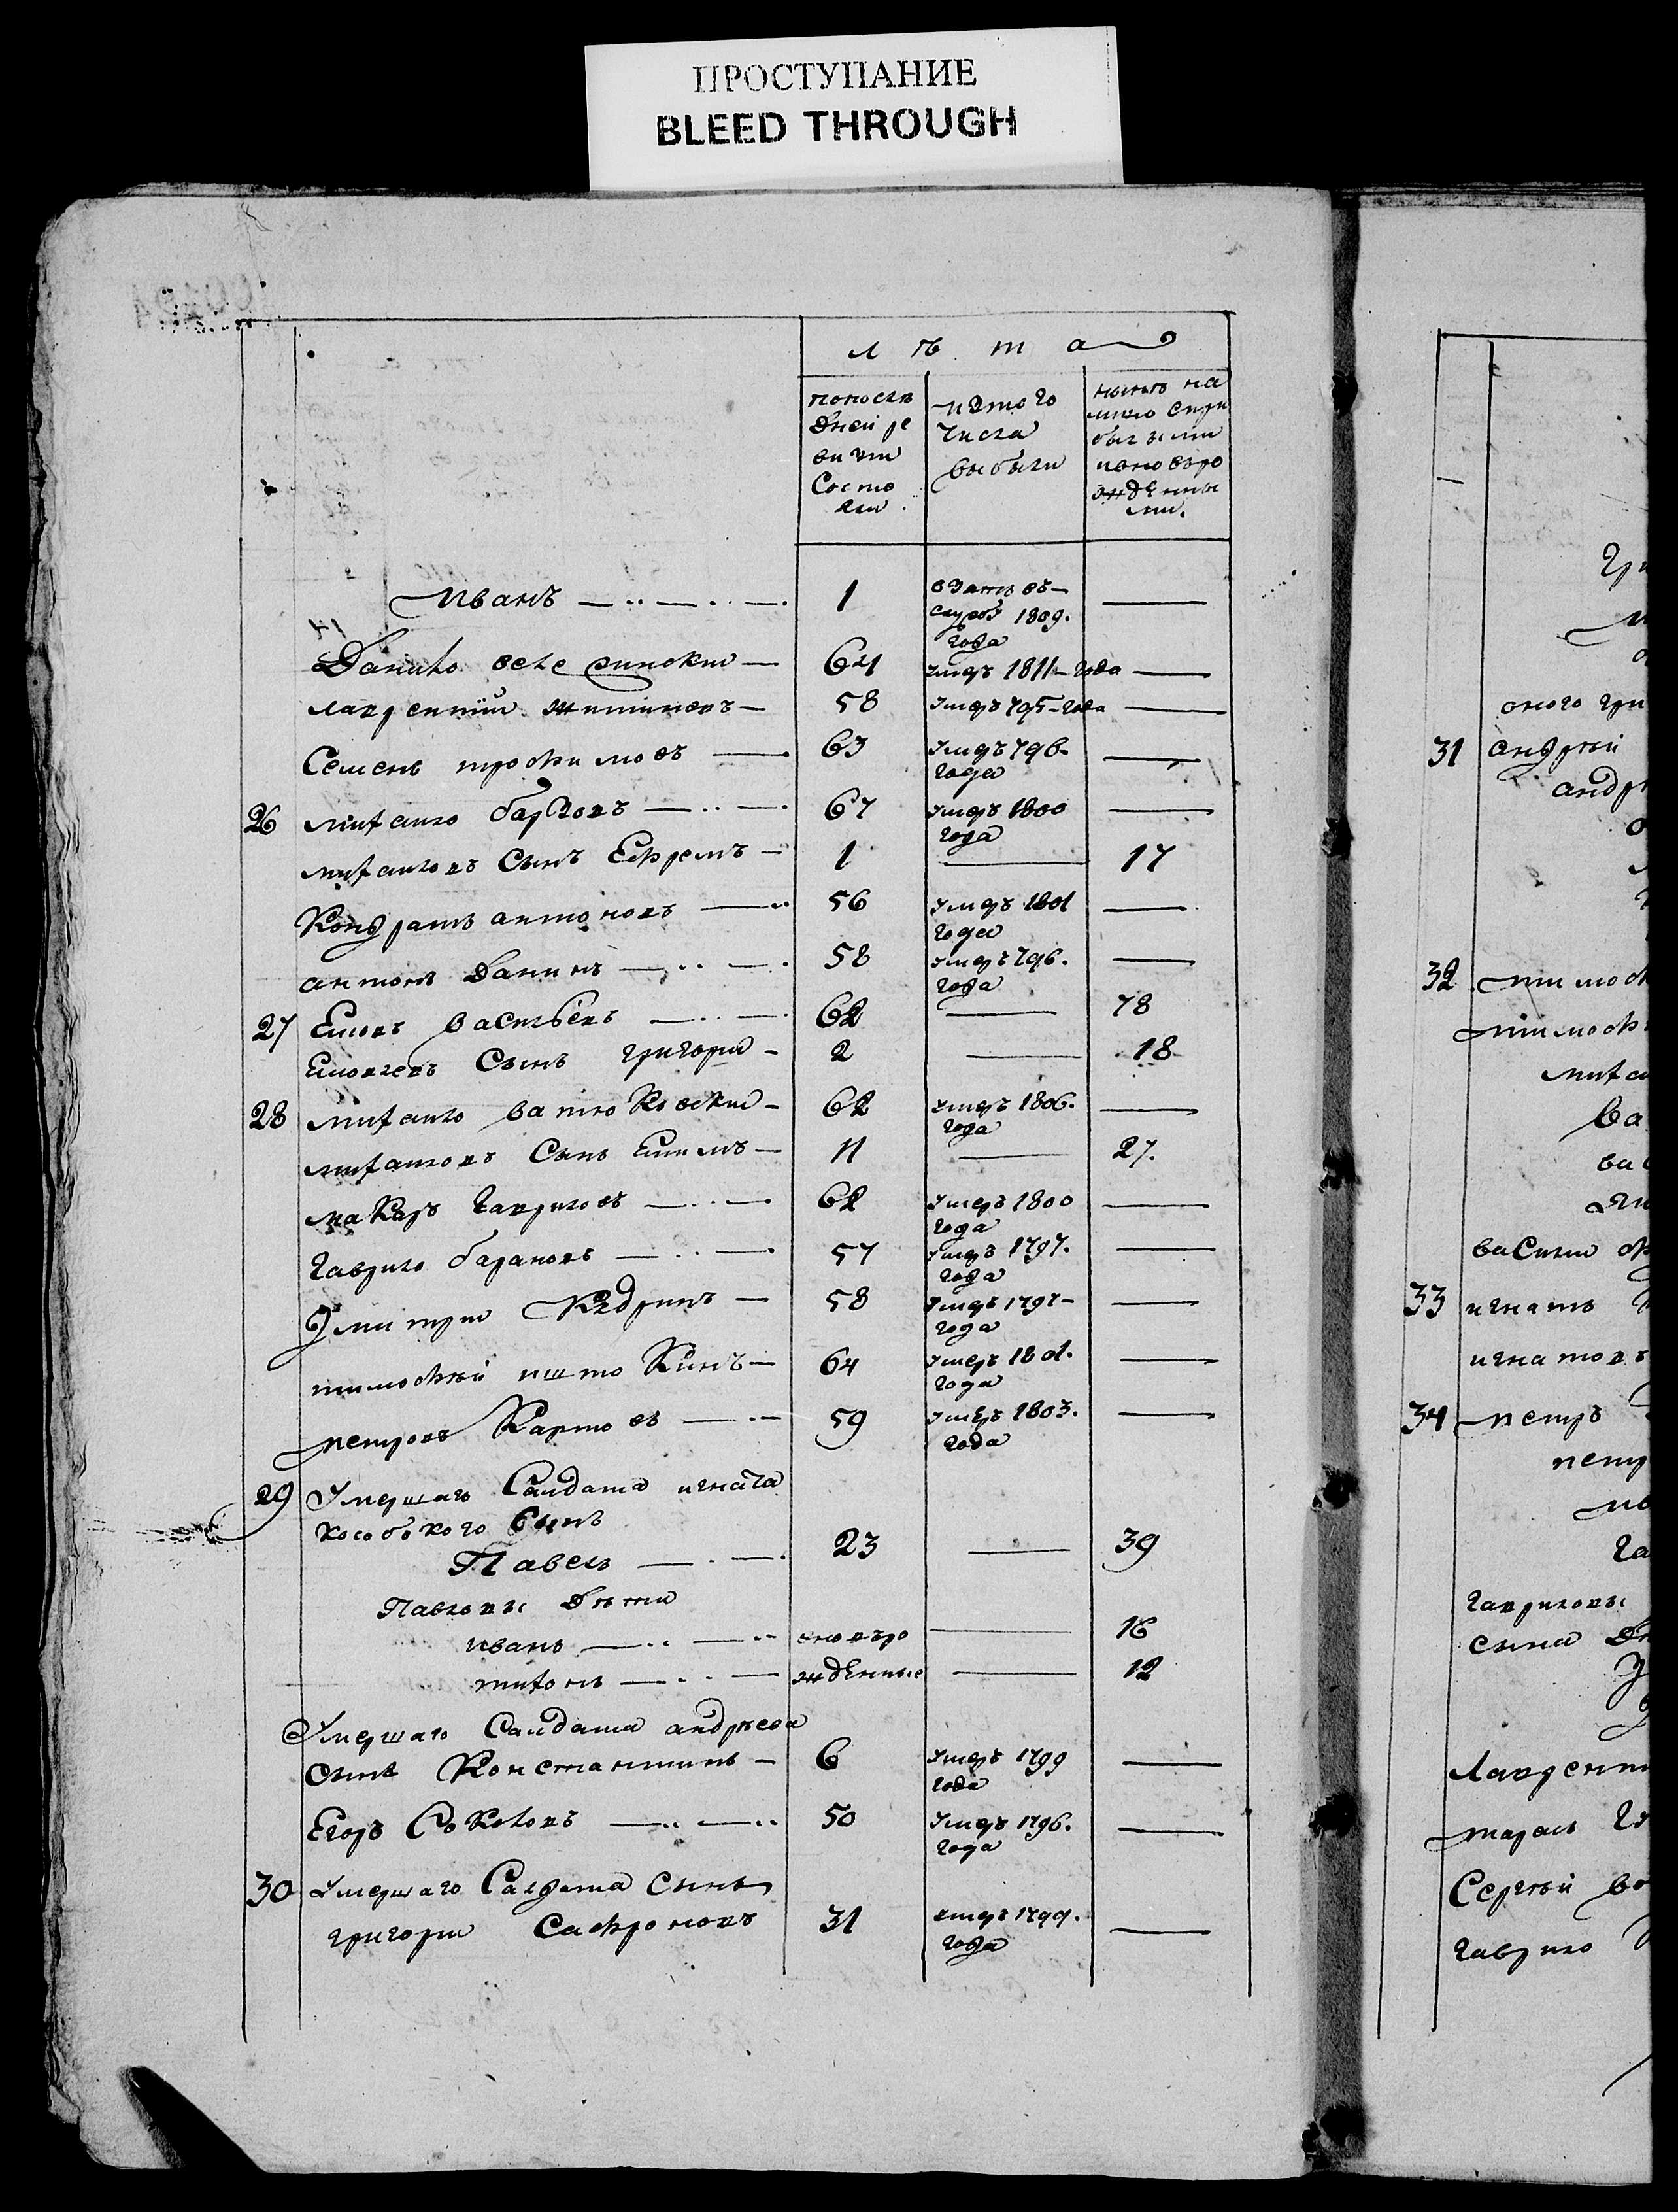 ПРОСТУПАНИЕ
BLEED THROUGH
лѣта
попослѣ
дней ре
визіи
Состо
яли
изтого
Числа
выбыли
нынѣ на
лицо Спри
былыми
иновѣро
жденны
ми.
Иванъ 1 взятъ въ
службу 1809.
года
Данило 64 умеръ 1811 года
лаврентий 58 умеръ 795 года
Семенъ трофимовъ 63 умеръ 796
года
26 михаило 67 умеръ 1800
года
михаиловъ Сынъ Ефремъ 1 17
Кондратъ антоновъ 56 умеръ 1801
года
антонъ Данинъ 58 умеръ 796.
года
27 васильевъ 62 78
Сынъ григори 2 18
28 михаило 62 умеръ 1806.
года
михаиловъ Сынъ Ефимъ 11 27.
макаръ Гавриловъ 62 умеръ 1800
года
Гаврило барановъ 57 умеръ 1797.
года
Дмитри Кадринъ 58 умеръ 1797
года
тимофѣй 64 умеръ 1801.
года
петровъ 59 умеръ 1803.
года
29 Умершаго Салдата игната
кособокого Сынъ
Павелъ 23 39
Павловы дѣти
иванъ вновъро 16
тихонъ жденные 12
Умершаго Салдата андреева
Сынъ Константинъ 6 умеръ 1799
года
Егоръ Соколовъ 50 умеръ 1796.
года
30 Умершаго Салдата Сынъ
григори Сафроновъ 31 умеръ 1799.
года
оного гри
31 андрѣй
андр
32 тимоф
тимоф
миха
ва
ва
василии
33 игнатъ
игнатовъ
34 петръ
петр
Гавриловы
сына
Лаврент
тарасъ
Сергѣй
гаврило